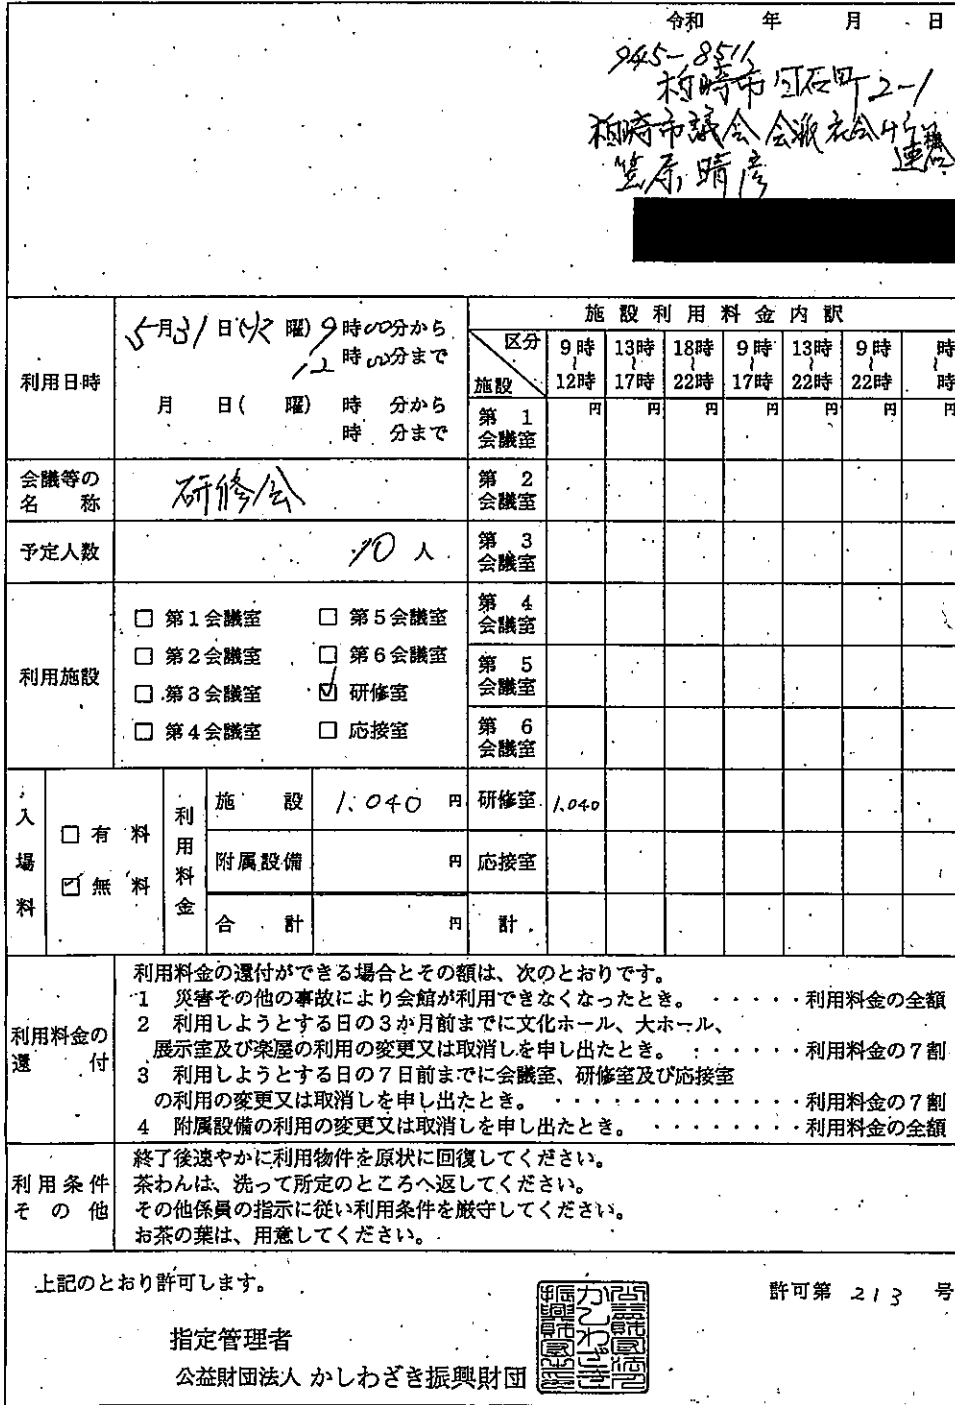 令和　　年　　月　　日
945-8511
柏崎市日石町2-1
柏崎市議会 会派
連絡
笠原晴彦
利用日時
5月31日(水曜) 9時00分から
12時00分まで
月　日(　曜)　時　分から
時　分まで
会議等の名称
研修会
予定人数
10人
利用施設
□ 第1会議室　□ 第5会議室
□ 第2会議室　□ 第6会議室
□ 第3会議室　☑ 研修室
□ 第4会議室　□ 応接室
施設利用料金内訳
区分　9時～12時　13時～17時　18時～22時　9時～17時　13時～22時　9時～22時　時～時
施設
第1会議室　円　円　円　円　円　円　円
第2会議室
第3会議室
第4会議室
第5会議室
第6会議室
研修室　1,040
応接室
計
入場料
□ 有料
☑ 無料
利用料金
施設　1,040円
附属設備　円
合計　円
利用料金の還付
利用料金の還付ができる場合とその額は、次のとおりです。
1　災害その他の事故により会館が利用できなくなったとき。・・・・・利用料金の全額
2　利用しようとする日の3か月前までに文化ホール、大ホール、
展示室及び楽屋の利用の変更又は取消しを申し出たとき。・・・・・・利用料金の7割
3　利用しようとする日の7日前までに会議室、研修室及び応接室
の利用の変更又は取消しを申し出たとき。・・・・・・・・・・・・・利用料金の7割
4　附属設備の利用の変更又は取消しを申し出たとき。・・・・・・・・利用料金の全額
利用条件その他
終了後速やかに利用物件を原状に回復してください。
茶わんは、洗って所定のところへ返してください。
その他係員の指示に従い利用条件を厳守してください。
お茶の葉は、用意してください。
上記のとおり許可します。
許可第 213 号
指定管理者
公益財団法人 かしわざき振興財団